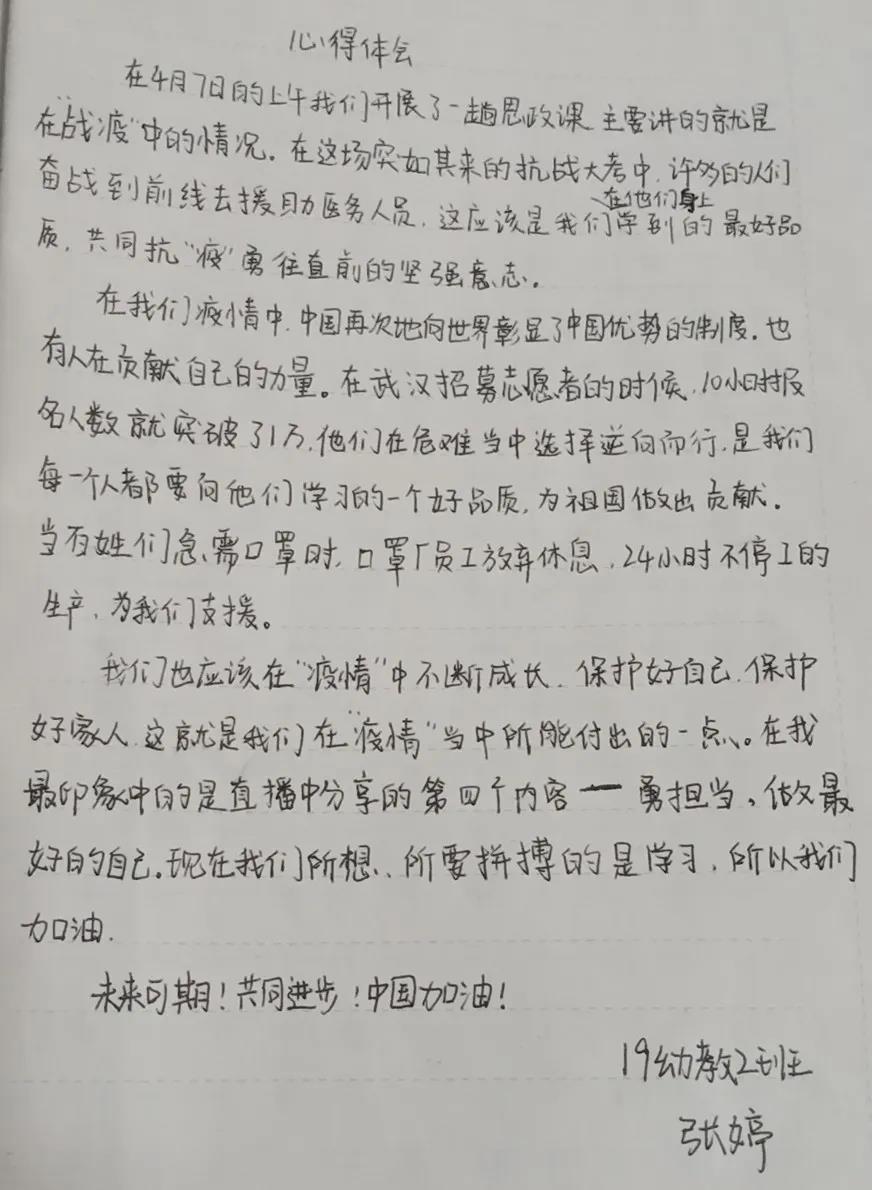 心得体会
在4月7日的上午我们开展了一趟思政课 主要讲的就是
在“战疫”中的情况。在这场突如其来的抗战大考中，许多的人们
奋战到前线去援助医务人员，这应该是我们在他们身上学到的最好品
质，共同抗“疫”勇往直前的坚强意志。
在我们疫情中，中国再次地向世界彰显了中国优势的制度，也
有人在贡献自己的力量。在武汉招募志愿者的时候，10小时报
名人数就突破了1万，他们在危难当中选择逆向而行，是我们
每一个人都要向他们学习的一个好品质，为祖国做出贡献。
当百姓们急需口罩时，口罩厂员工放弃休息，24小时不停工的
生产，为我们支援。
我们也应该在“疫情”中不断成长，保护好自己，保护
好家人，这就是我们在“疫情”当中所能付出的一点。在我
最印象中的是直播中分享的第四个内容一勇担当，做最
好的自己。现在我们所想、所要拼搏的是学习，所以我们
加油.
未来可期！共同进步！中国加油！
19幼教2班
张婷